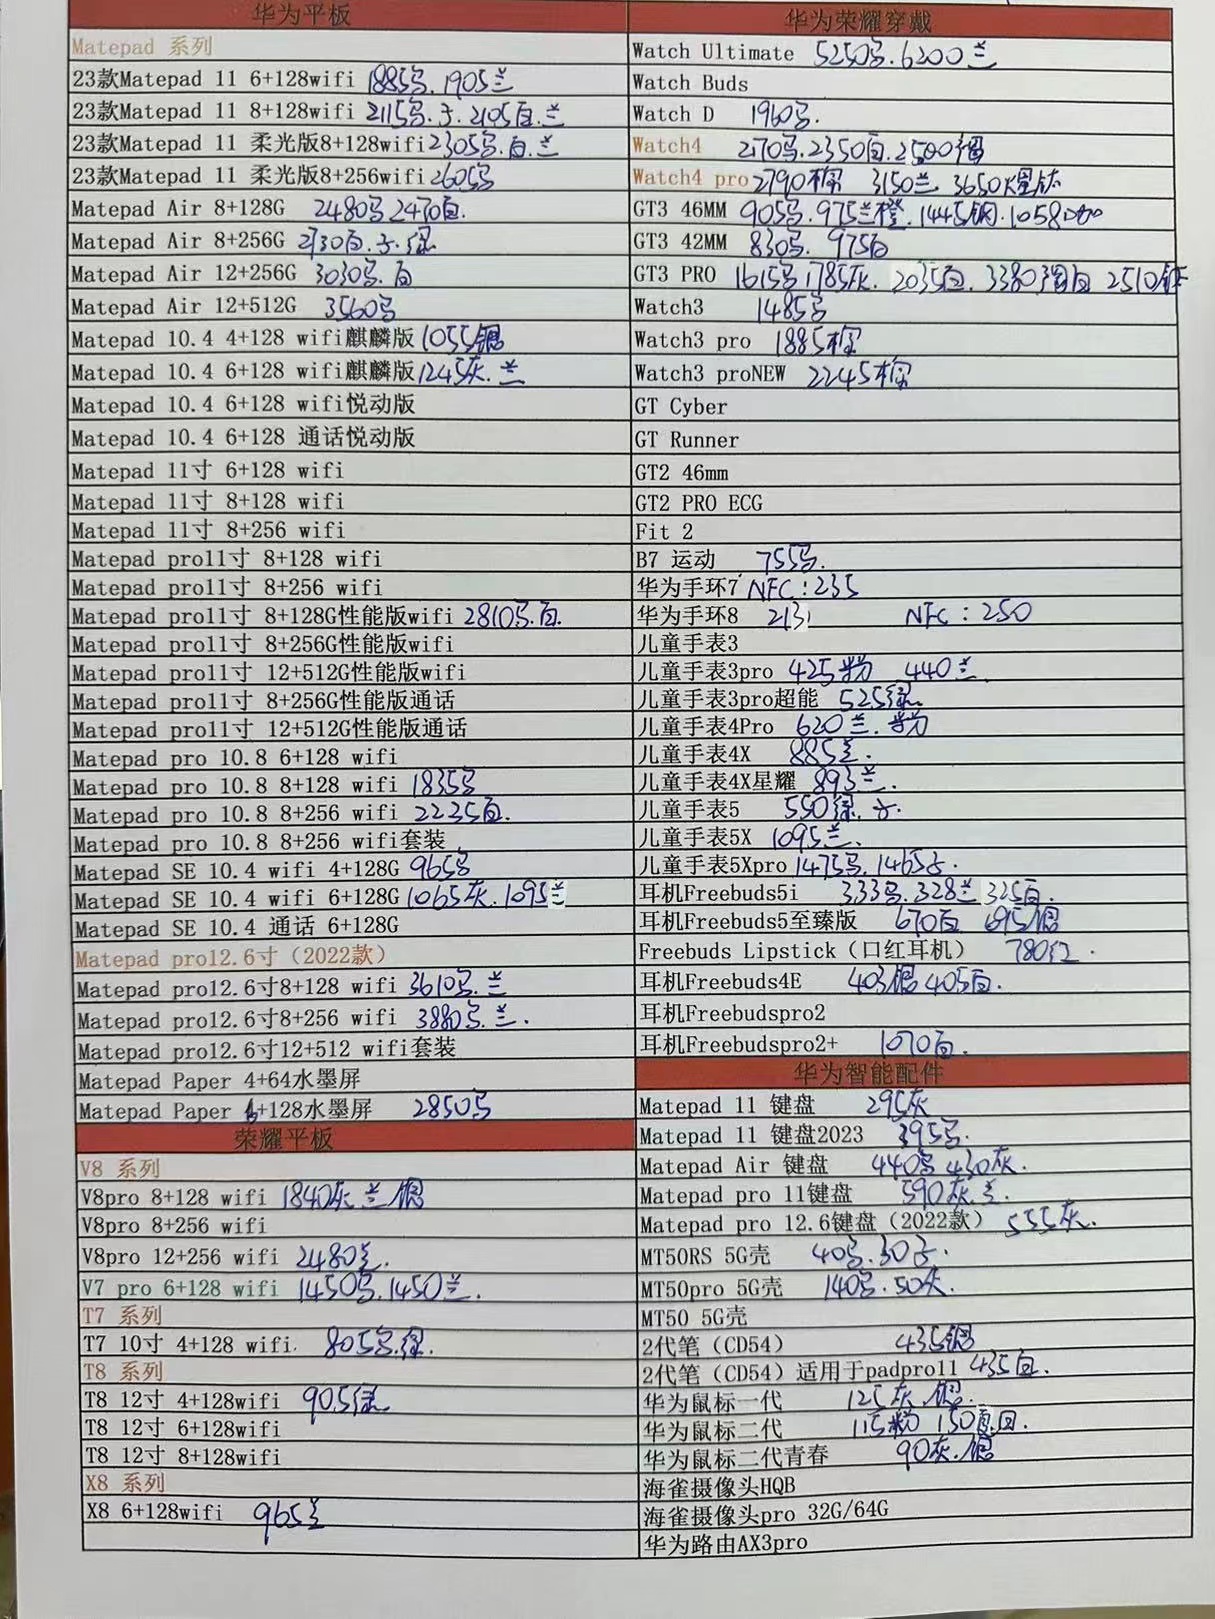 华为平板
Matepad 系列
23款Matepad 11 6+128wifi 1885 1905兰
23款Matepad 11 8+128wifi 2115 2105白.兰
23款Matepad 11 柔光版8+128wifi 2305 白.兰
23款Matepad 11 柔光版8+256wifi 2605
Matepad Air 8+128G 2480 2470白.
Matepad Air 8+256G 2730白. 绿
Matepad Air 12+256G 3030 白
Matepad Air 12+512G 3560
Matepad 10.4 4+128 wifi麒麟版 1055银
Matepad 10.4 6+128 wifi麒麟版 1245灰.兰
Matepad 10.4 6+128 wifi悦动版
Matepad 10.4 6+128 通话悦动版
Matepad 11寸 6+128 wifi
Matepad 11寸 8+128 wifi
Matepad 11寸 8+256 wifi
Matepad pro11寸 8+128 wifi
Matepad pro11寸 8+256 wifi
Matepad pro11寸 8+128G性能版wifi 2810 白.
Matepad pro11寸 8+256G性能版wifi
Matepad pro11寸 12+512G性能版wifi
Matepad pro11寸 8+256G性能版通话
Matepad pro11寸 12+512G性能版通话
Matepad pro 10.8 6+128 wifi
Matepad pro 10.8 8+128 wifi 1835
Matepad pro 10.8 8+256 wifi 2235白.
Matepad pro 10.8 8+256 wifi套装
Matepad SE 10.4 wifi 4+128G 965
Matepad SE 10.4 wifi 6+128G 1065灰.1095兰
Matepad SE 10.4 通话 6+128G
Matepad pro12.6寸（2022款）
Matepad pro12.6寸8+128 wifi 3610 兰
Matepad pro12.6寸8+256 wifi 3880 兰.
Matepad pro12.6寸12+512 wifi套装
Matepad Paper 4+64水墨屏
Matepad Paper 6+128水墨屏 2850
荣耀平板
V8 系列
V8pro 8+128 wifi 1840灰.兰.银
V8pro 8+256 wifi
V8pro 12+256 wifi 2480兰.
V7 pro 6+128 wifi 1450 1450兰.
T7 系列
T7 10寸 4+128 wifi 805 绿.
T8 系列
T8 12寸 4+128wifi 905绿
T8 12寸 6+128wifi
T8 12寸 8+128wifi
X8 系列
X8 6+128wifi 965兰
华为荣耀穿戴
Watch Ultimate 5250 6200兰
Watch Buds
Watch D 1960
Watch4 2170 2350白.2500
Watch4 pro 2790棕 3150兰 3650
GT3 46MM 905 975兰橙.1445钢.1058
GT3 42MM 830 975白
GT3 PRO 1615 1785灰.2035白.3380陶白 2510钛
Watch3 1485
Watch3 pro 1885棕
Watch3 proNEW 2245棕
GT Cyber
GT Runner
GT2 46mm
GT2 PRO ECG
Fit 2
B7 运动 755
华为手环7 NFC:235
华为手环8 213 NFC:250
儿童手表3
儿童手表3pro 425粉 440兰
儿童手表3pro超能 525绿
儿童手表4Pro 620兰.粉
儿童手表4X 885兰.
儿童手表4X星耀 893兰.
儿童手表5 550绿.
儿童手表5X 1095兰.
儿童手表5Xpro 1475 1465
耳机Freebuds5i 333 328兰 325白.
耳机Freebuds5至臻版 670白 695银
Freebuds Lipstick（口红耳机） 780红.
耳机Freebuds4E 403银 405白.
耳机Freebudspro2
耳机Freebudspro2+ 1070白.
华为智能配件
Matepad 11 键盘 295灰
Matepad 11 键盘2023 395
Matepad Air 键盘 440 430灰.
Matepad pro 11键盘 590灰.兰.
Matepad pro 12.6键盘（2022款） 555灰.
MT50RS 5G壳 40 30
MT50pro 5G壳 140 50灰.
MT50 5G壳
2代笔（CD54） 435银
2代笔（CD54）适用于padpro11 435白.
华为鼠标一代 125灰.银.
华为鼠标二代 115粉 150
华为鼠标二代青春 90灰.银
海雀摄像头HQB
海雀摄像头pro 32G/64G
华为路由AX3pro